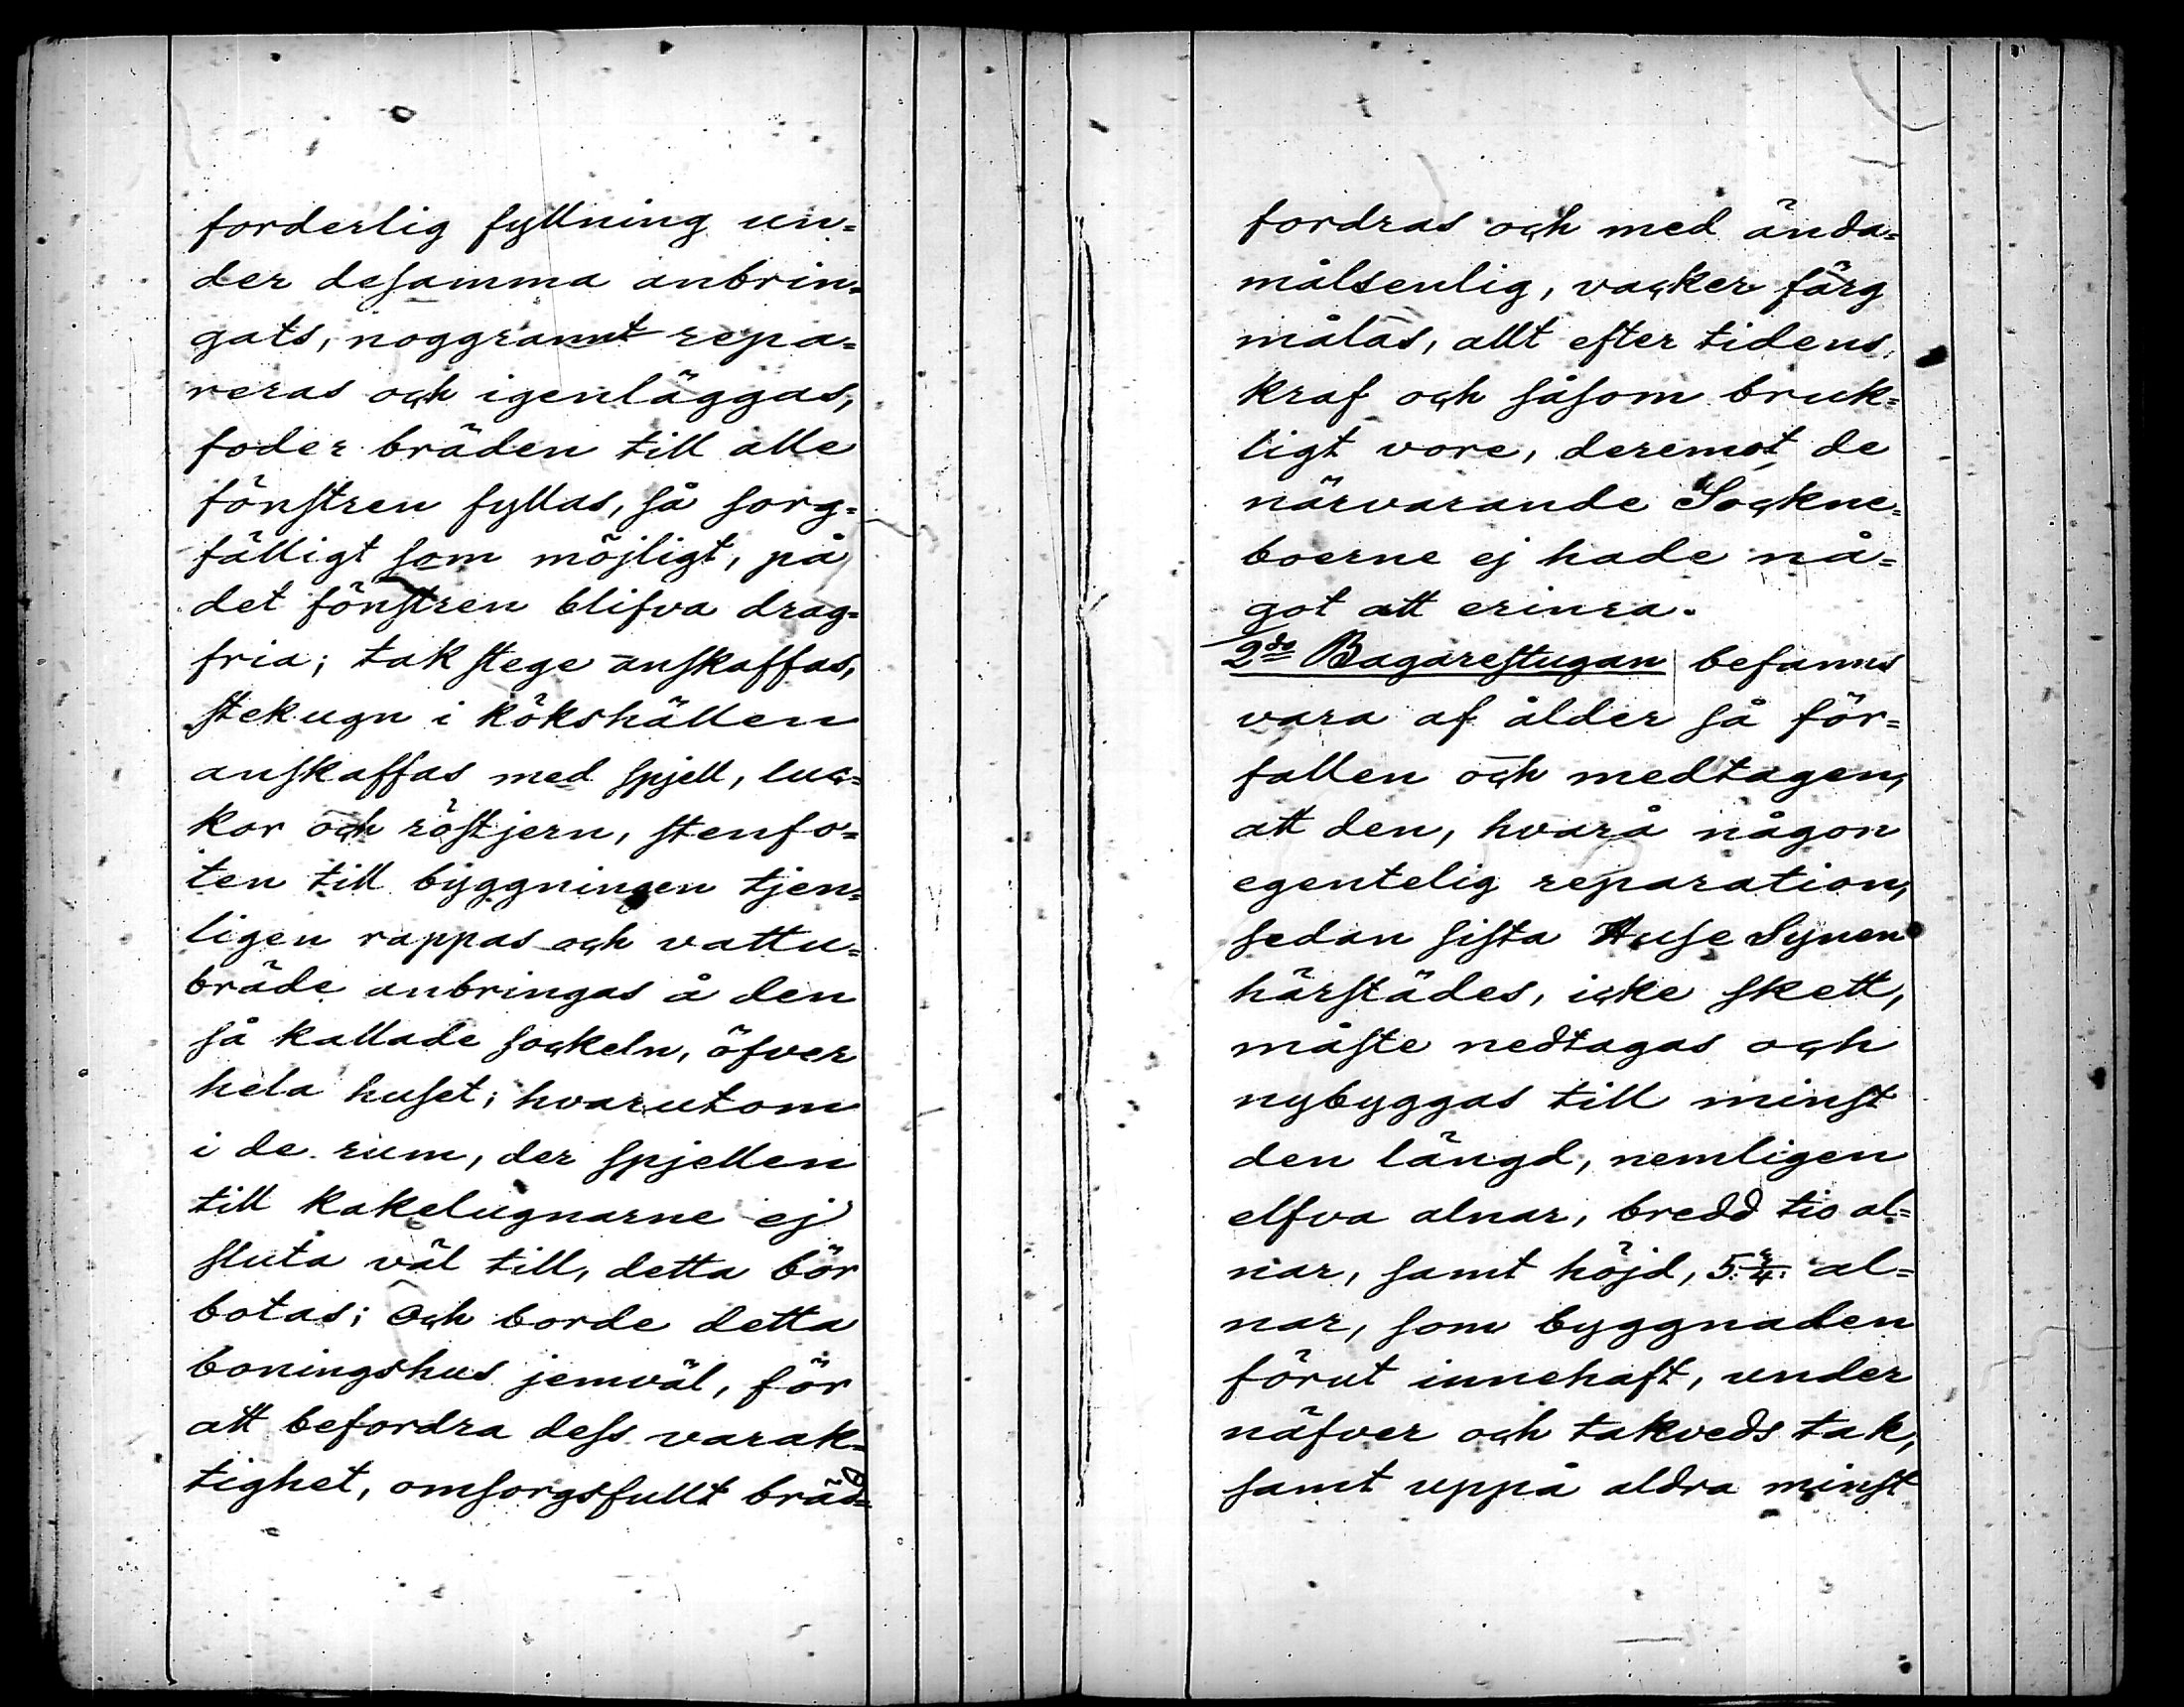 forderlig fyllning un=
der desamma anbrin=
gats, noggrannt repa=
reras och igenläggas,
foder bräden till alle
fönstren fyllas, så sorg=
fälligt som möjligt, på
det fönstren blifva drag=
fria; tak stege anskaffas,
stekugn i kökshällen
anskaffas med spjell, luc=
kor och röstjern, stenfo=
ten till byggningen tjen=
ligen rappas och vattu=
bräde anbringas å den
så kallade sockeln, öfver
hela huset; hvarutom
i de rum, der spjellen
till kakelugnarne ej
sluta väl till, detta bör
botas; och borde detta
boningshus jemväl, för
att befordra dess varak=
tighet, omsorgsfullt bräd=
fordras och med ända=
målsenlig, vacker färg
målas, allt efter tidens
kraf och såsom bruk=
ligt vore, deremot de
närvarande Sockne=
boerne ej hade nå=
got att erinra.
2do Bagarestugan befanns
vara af ålder så för=
fallen och medtagen,
att den, hvarå någon
egentelig reparation,
sedan sista Huse Synen
härstädes, icke skett,
måste nedtagas och
nybyggas till minst
den längd, nemligen
elfva alnar, bredd tio al=
nar, samt höjd, 5 3/4 al=
nar, som byggnaden
förut innehaft, under
näfver och takveds tak,
samt uppå aldra minst